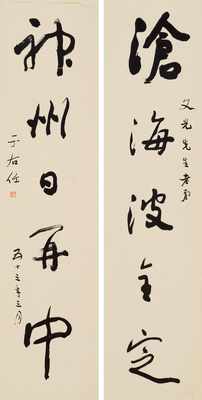 滄海波全定
文光先生老弟
神州日再中
五十三年三月
于右任